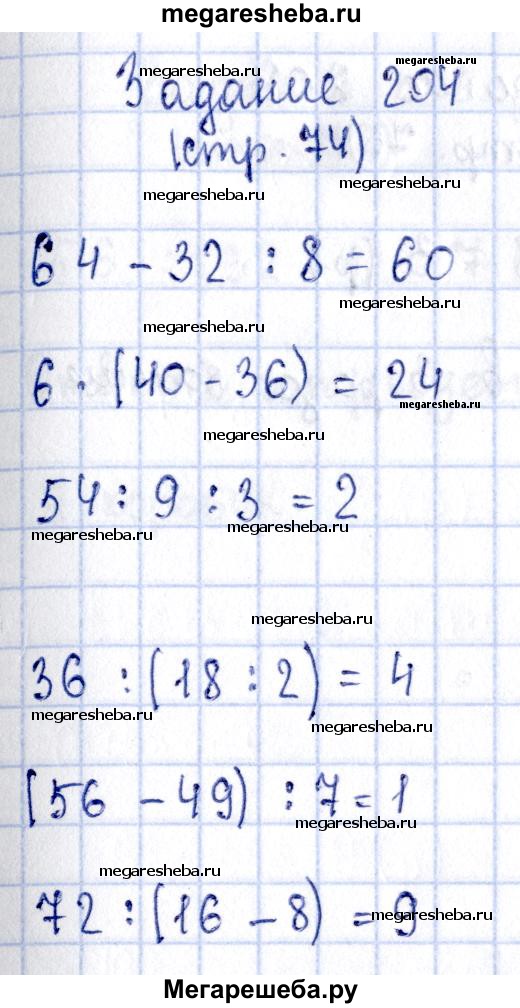 megaresheba.ru
megaresheba.ru
megaresheba.ru
Задание 204
(стр. 74)
megaresheba.ru
megaresheba.ru
64 - 32 : 8 = 60
megaresheba.ru
megaresheba.ru
6 · (40 - 36) = 24
megaresheba.ru
megaresheba.ru
54 : 9 : 3 = 2
megaresheba.ru
megaresheba.ru
megaresheba.ru
36 : (18 : 2) = 4
megaresheba.ru
megaresheba.ru
(56 - 49) : 7 = 1
megaresheba.ru
megaresheba.ru
72 : (16 - 8) = 9
megaresheba.ru
Мегарешеба.ру